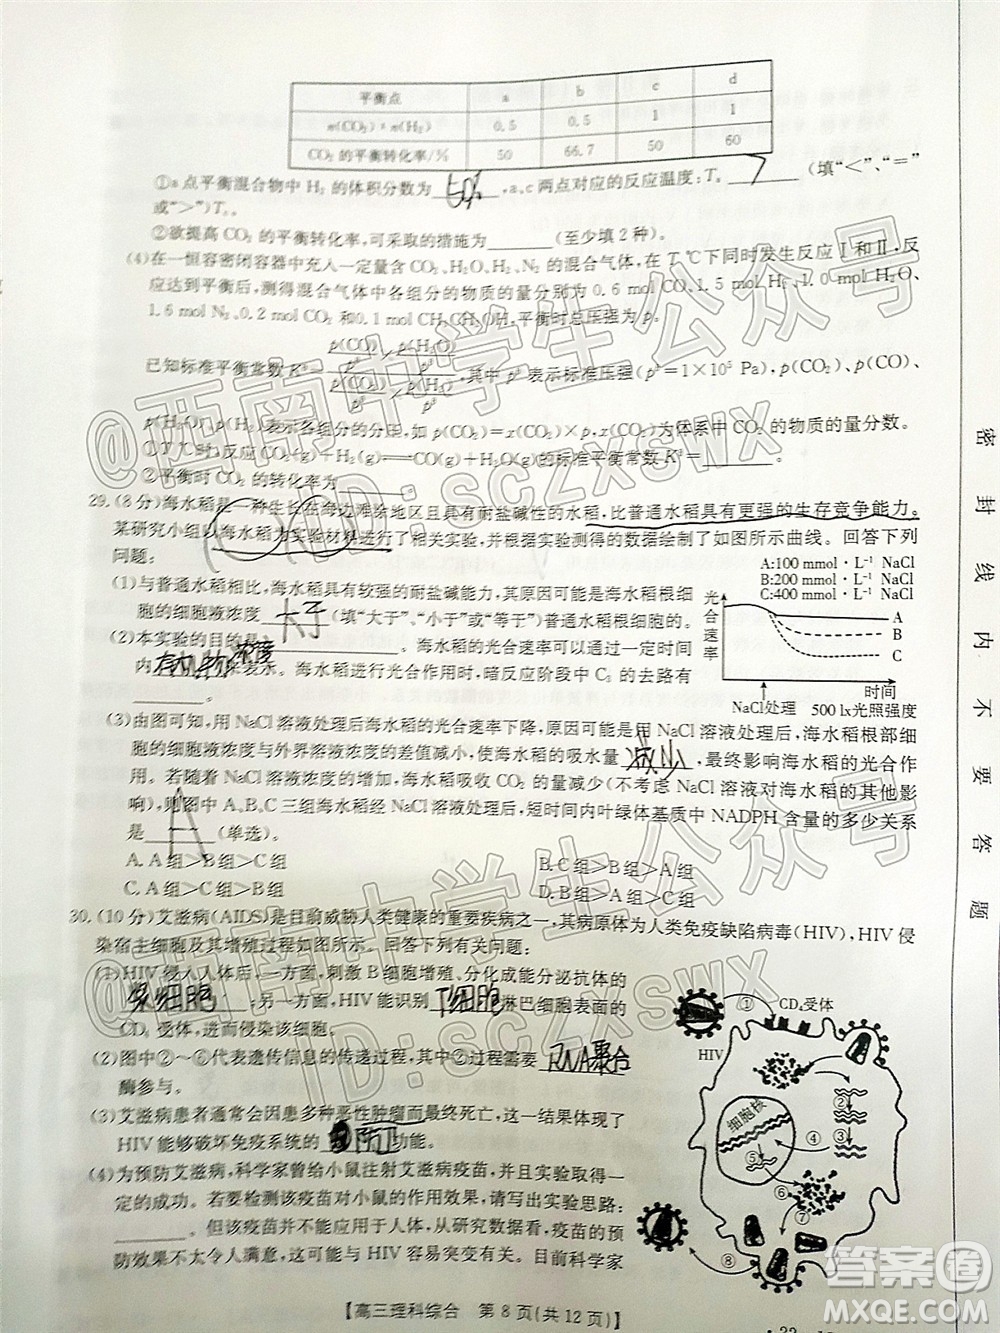 平衡点 a b c d
n(CO₂):n(H₂) 0.5 0.5 1 1
CO₂的平衡转化率/% 50 66.7 50 60
①a点平衡混合物中H₂的体积分数为50%,a、c两点对应的反应温度:Tₐ > (填“<”“=”
或“>”)T꜀。
②欲提高CO₂的平衡转化率,可采取的措施为________(至少填2种)。
(4)在一恒容密闭容器中充入一定量的CO₂、H₂O、H₂、N₂的混合气体,在T ℃下同时发生反应Ⅰ和Ⅱ,反
应达到平衡后,测得混合气体中各组分的物质的量分别为0.6 mol CO₂、1.5 mol H₂、1.0 mol H₂O、
1.6 mol N₂、0.2 mol CO₂和0.1 mol CH₃CH₂OH,平衡时总压强为p。
已知标准平衡常数
,其中p^θ表示标准压强(p^θ=1×10⁵ Pa),p(CO₂)、p(CO)、
p(H₂O)、p(H₂)表示各组分的分压,如p(CO₂)=x(CO₂)·p,x(CO₂)为体系中CO₂的物质的量分数。
①反应H₂(g)+CO₂(g)⇌CO(g)+H₂O(g)的标准平衡常数K^θ=________。
②平衡时CO₂的转化率为
29.(8分)海水稻是一种生长在海边滩涂地区且具有耐盐碱性的水稻,比普通水稻具有更强的生存竞争能力。
某研究小组以海水稻为实验材料进行了相关实验,并根据实验测得的数据绘制了如图所示曲线。回答下列
问题:
(1)与普通水稻相比,海水稻具有较强的耐盐碱能力,其原因可能是海水稻根细
胞的细胞液浓度 大于 (填“大于”、“小于”或“等于”)普通水稻根细胞的。
(2)本实验的目的是________。海水稻的光合速率可以用一定时间
内 有机物浓度 来表示。海水稻进行光合作用时,暗反应阶段中C₃的去路有
________。
A:100 mmol·L⁻¹ NaCl
B:200 mmol·L⁻¹ NaCl
C:400 mmol·L⁻¹ NaCl
光合速率
A
B
C
时间
NaCl处理 500 lx光照强度
(3)由图可知,用NaCl溶液处理后海水稻的光合速率下降,原因可能是用NaCl溶液处理后,海水稻根部细
胞的细胞液浓度与外界溶液浓度的差值减小,使海水稻的吸水量 减少 ,最终影响海水稻的光合作用。
若随着NaCl溶液浓度的增加,海水稻吸收CO₂的量减少(不考虑NaCl溶液对海水稻的其他影
响),则图中A、B、C三组海水稻经NaCl溶液处理后,短时间内叶绿体中NADPH含量的多少关系
是 A (单选)。
A.C组>A组>B组
B.C组>B组>A组
C.A组>B组>C组
D.B组>A组>C组
30.(10分)艾滋病(AIDS)是目前威胁人类健康的重要疾病之一,其病原体为人类免疫缺陷病毒(HIV),HIV侵
染宿主细胞及其增殖过程如图所示。回答下列有关问题:
(1)HIV侵入人体后,一方面,刺激B细胞增殖、分化成能分泌抗体的
浆细胞 ;另一方面,HIV能识别 T细胞 淋巴细胞表面的
CD₄受体,进而侵染该细胞。
(2)图中②~⑥代表遗传信息的传递过程,其中②过程需要 RNA聚合
酶参与。
(3)艾滋病患者通常会因患多种恶性肿瘤而最终死亡,这一结果体现了
HIV能够破坏免疫系统的 防卫 功能。
(4)为预防艾滋病,科学家曾给小鼠注射艾滋病疫苗,并且实验取得了一
定的成功。若要检测该疫苗对小鼠的作用效果,请写出实验思路:
________。但该疫苗并不能应用于人体,从研究数据看,疫苗的预
防效果不太令人满意,这可能与HIV容易突变有关。目前科学家
HIV
CD₄受体
细胞核
①
②
③
④
⑤
⑥
⑦
⑧
【高三理科综合 第8页(共12页)】
密封线内不要答题
@西南中学生公众号
ID:SCZXSWX
@西南中学生公众号
ID:SCZXSWX
答案圈
MXQE.COM